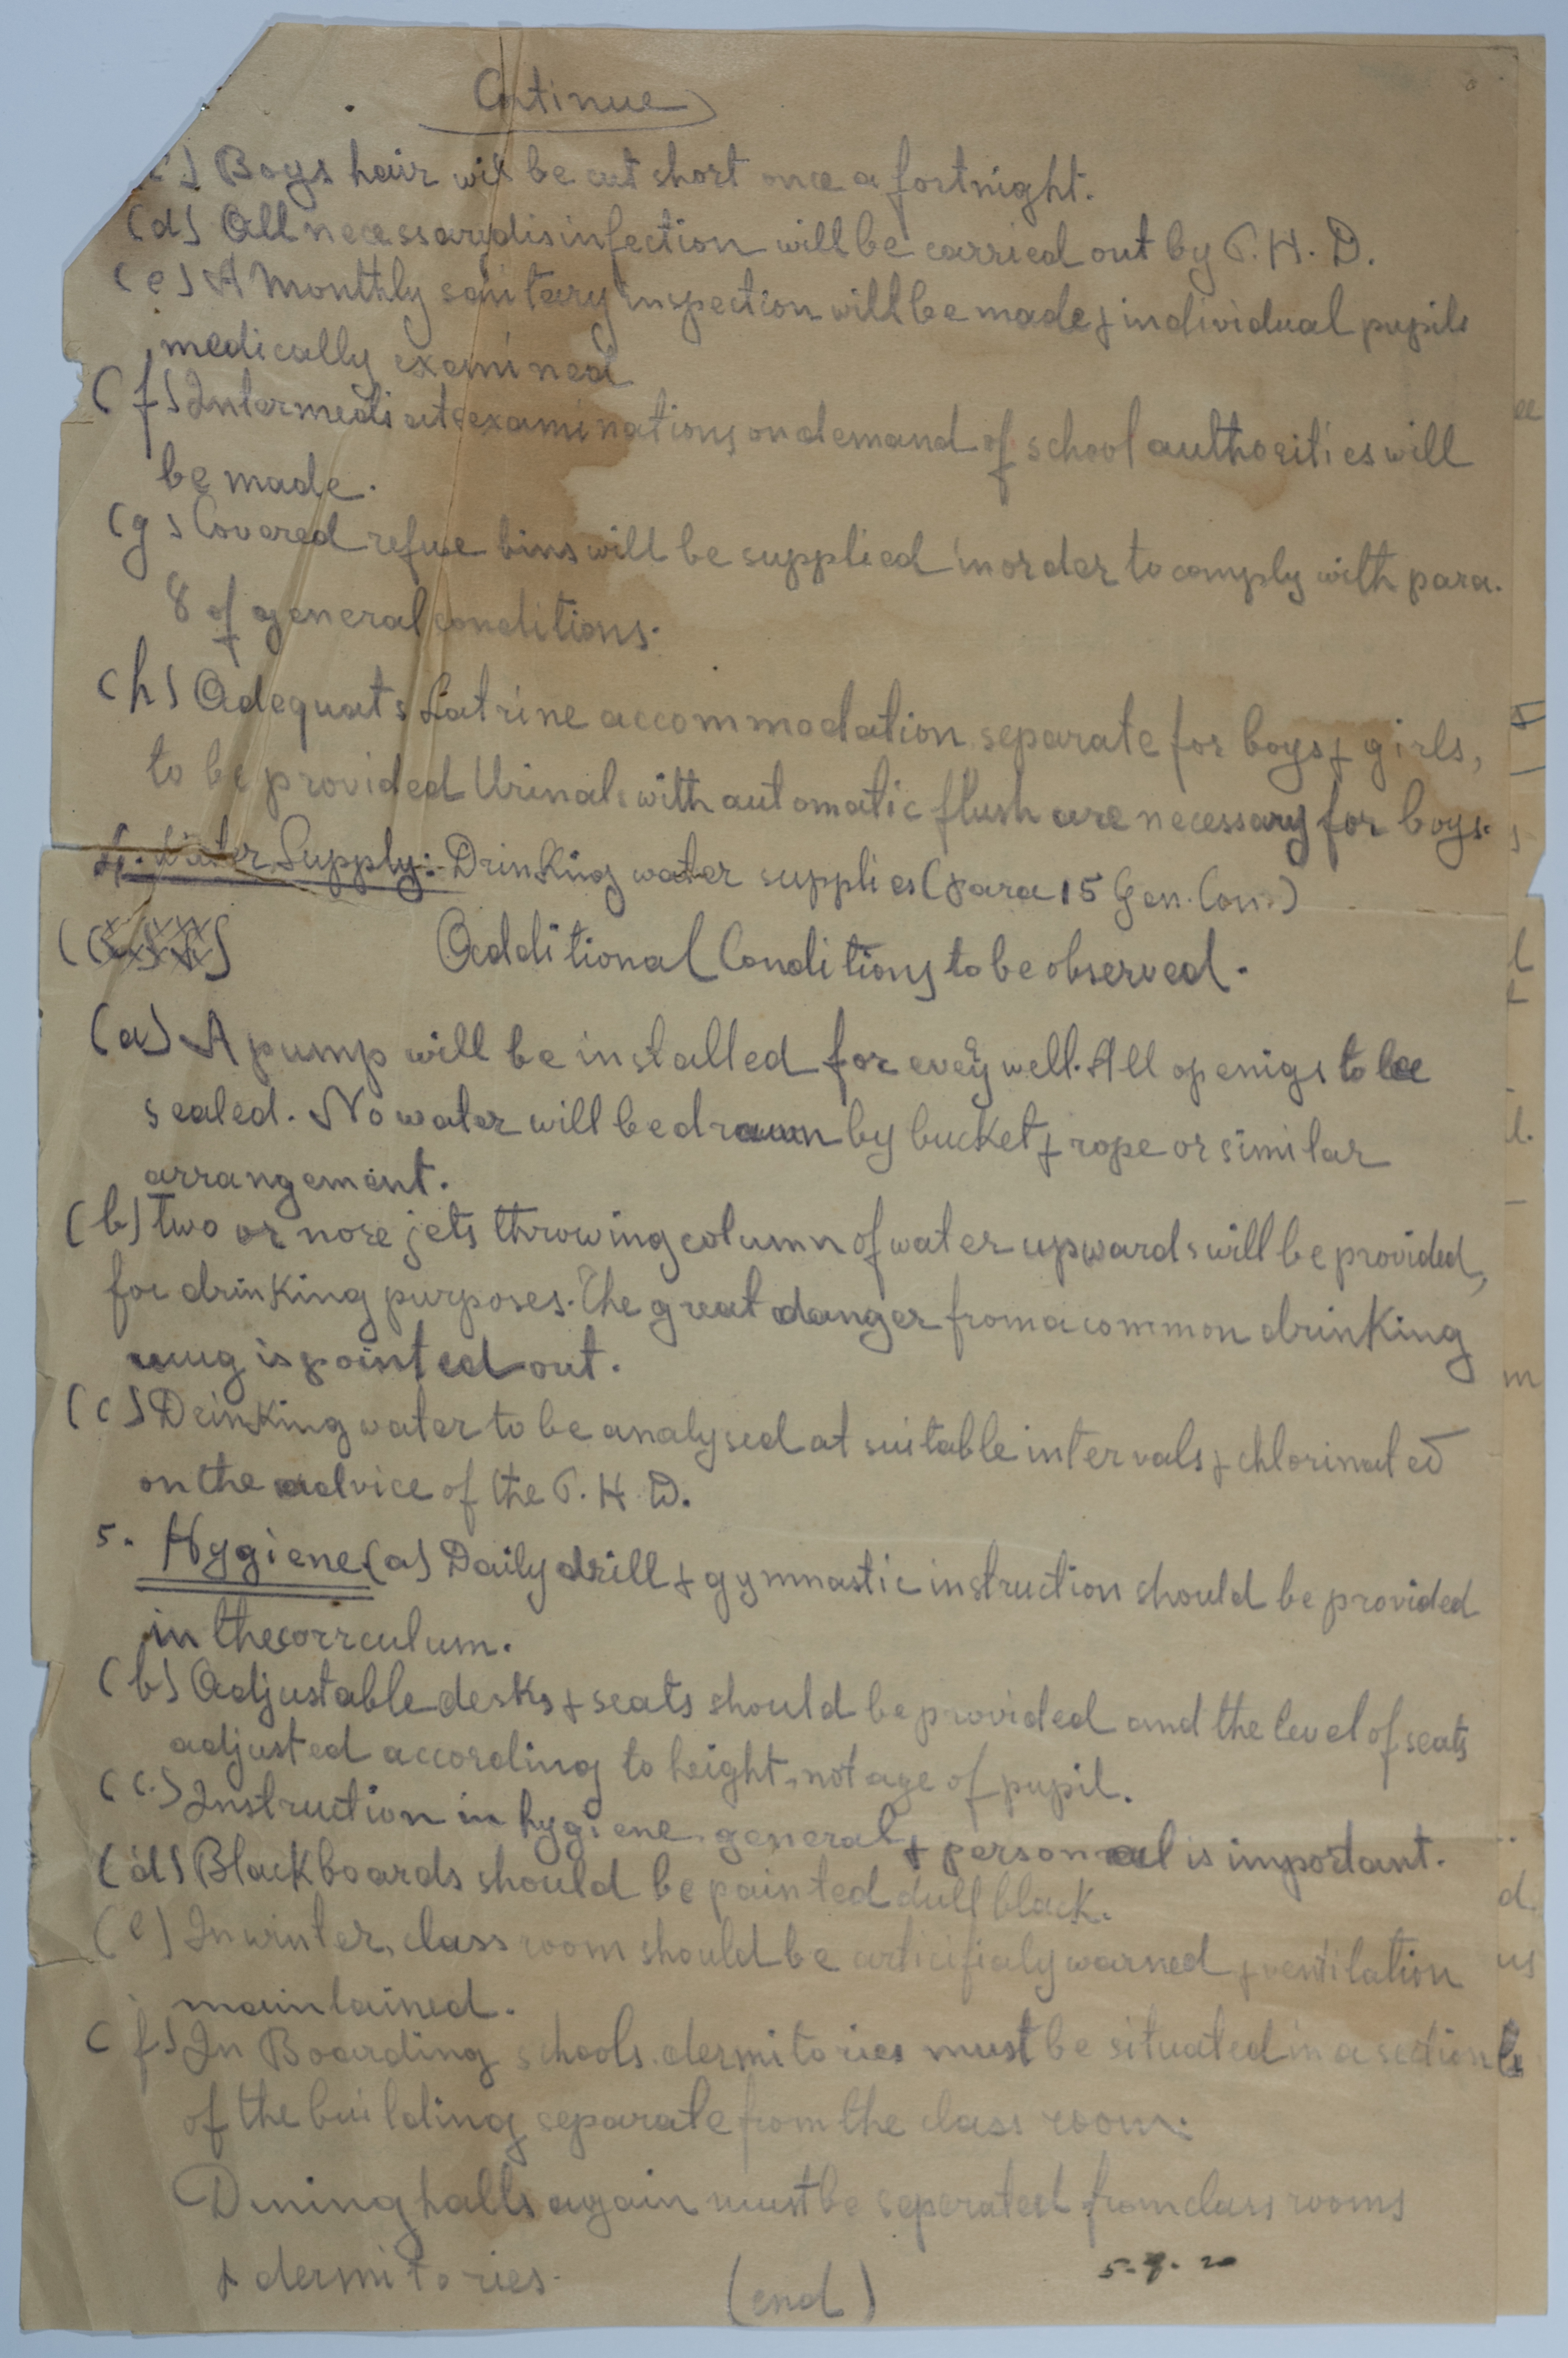 Continue
(c) Boys hair will be cut short once a fortnight.
(d) All necessary disinfection will be carried out by P. H. D.
(e) A Monthly sanitary inspection will be made & individual pupils
medically examined
(f) Intermediate examinations on demand of school authorities will
be made.
(g) Covered refuse bins will be supplied in order to comply with para.
8 of general conditions.
(h) Adequate Latrine accommodation separate for boys & girls,
to be provided Urinals with automatic flush are necessary for boys.
4. Water Supply: Drinking water supplies (para 15 Gen. Con.)
Additional Conditions to be observed.
(a) A pump will be installed for every well. All openigs to be
sealed. No water will be drawn by bucket & rope or similar
arrangement.
(b) two or nore jets throwing column of water upwards will be provided,
for drinking purposes. The great danger from a common drinking
mug is pointed out.
(c) Drinking water to be analysed at suitable intervals & chlorinated
on the advice of the P. H. D.
5. Hygiene (a) Daily drill & gymnastic instruction should be provided
in the corrculum.
(b) Adjustable desks & seats should be provided and the level of seats
adjusted according to height, not age of pupil.
(c) Instruction in hygiene general & personal is important.
(d) Blackboards should be painted dull black.
(e) In winter, class room should be articifialy warned & ventilation
maintained.
(f) In Boarding schools dermitories must be situated in a section
of the building separate from the class room.
Dining halls again must be seperated from class rooms
& dermitories.
(end)
5-9-20